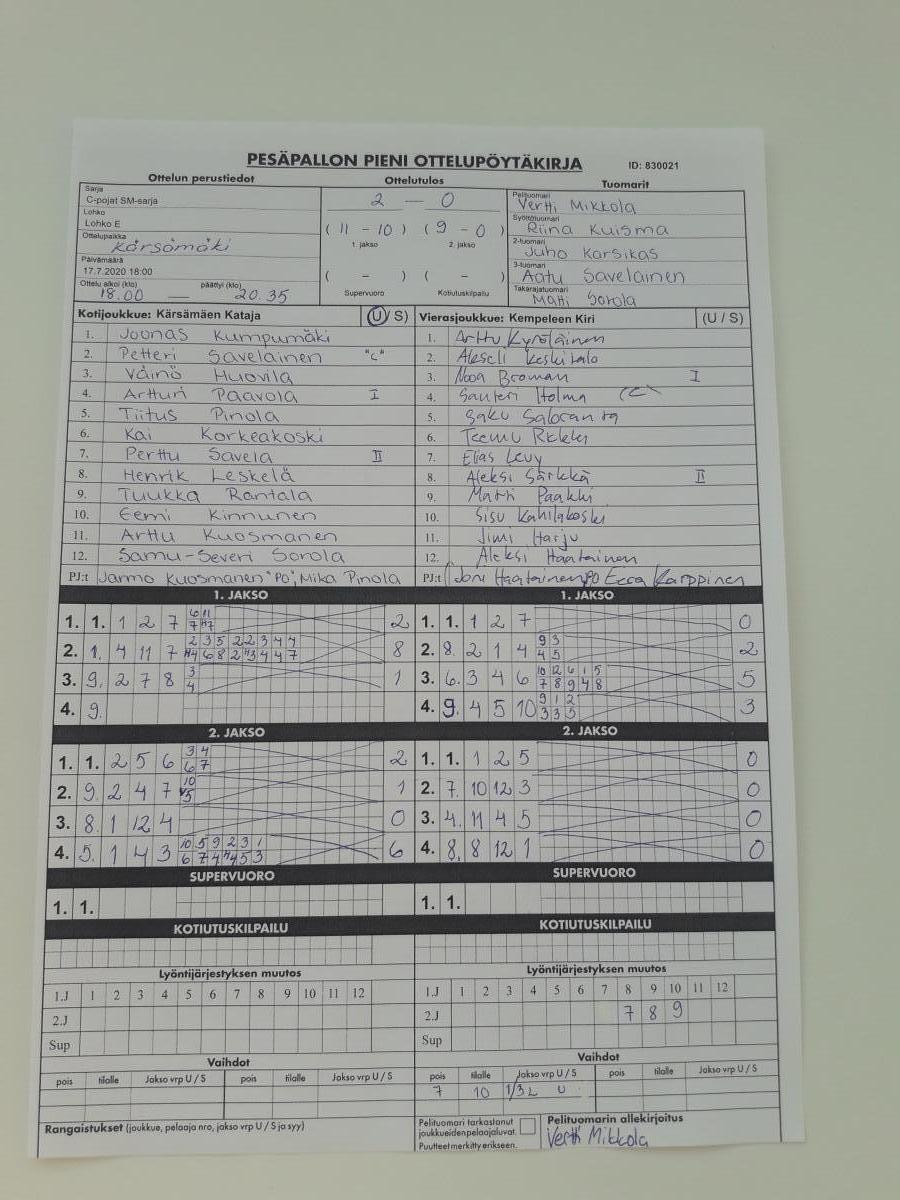 PESÄPALLON PIENI OTTELUPÖYTÄKIRJA ID: 830021
Ottelun perustiedot Ottelutulos Tuomarit
Sarja
C-pojat SM-sarja
Lohko
Lohko E
Ottelupaikka
Kärsämäki
Päivämäärä
17.7.2020 18:00
Ottelu alkoi (klo) päättyi (klo)
18.00 — 20.35
2 — 0
( 11 - 10 ) ( 9 - 0 )
1. jakso 2. jakso
( - ) ( - )
Supervuoro Kotiutuskilpailu
Pelituomari
Vertti Mikkola
Syöttötuomari
Riina Kuisma
2-tuomari
Juho Karsikas
3-tuomari
Aatu Savelainen
Takarajatuomari
Matti Sorola
Kotijoukkue: Kärsämäen Kataja (U/ S)
1. Joonas Kumpumäki
2. Petteri Savelainen "C"
3. Väinö Huovila
4. Artturi Paavola I
5. Tiitus Pinola
6. Kai Korkeakoski
7. Perttu Savela II
8. Henrik Leskelä
9. Tuukka Rantala
10. Eemi Kinnunen
11. Arttu Kuosmanen
12. Samu-Severi Sorola
PJ:t Jarmo Kuosmanen "PO", Mika Pinola
Vierasjoukkue: Kempeleen Kiri (U / S)
1. Arttu Kyröläinen
2. Keskitalo
3. Nooa Broman I
4. Santeri Holma
5. Saku
6. Teemu
7. Elias Levy
8. Aleksi Särkkä II
9. Matti Paakki
10. Sisu Kahilakoski
11. Jimi Harju
12. Aleksi Haatainen
PJ:t Joni Haatainen PO Eera Karppinen
1. JAKSO
1. 1. 1 2 7 2
2. 1. 4 11 7 8
3. 9. 2 7 8 3 4 1
4. 9.
1. JAKSO
1. 1. 1 2 7 0
2. 8. 2 1 4 9 3 4 5 2
3. 6. 3 4 6 10 12 6 1 5 7 8 9 4 8 5
4. 9. 4 5 10 9 1 2 3 3 5 3
2. JAKSO
1. 1. 2 5 6 3 4 6 7 2
2. 9. 2 4 7 10 1
3. 8. 1 12 4 0
4. 5. 1 4 3 10 5 9 2 3 1 6
2. JAKSO
1. 1. 1 2 5 0
2. 7. 10 12 3 0
3. 4. 11 4 5 0
4. 8. 8 12 1 0
SUPERVUORO
1. 1.
SUPERVUORO
1. 1.
KOTIUTUSKILPAILU
KOTIUTUSKILPAILU
Lyöntijärjestyksen muutos
1.J 1 2 3 4 5 6 7 8 9 10 11 12
2.J
Sup
Lyöntijärjestyksen muutos
1.J 1 2 3 4 5 6 7 8 9 10 11 12
2.J 7 8 9
Sup
Vaihdot
pois tilalle Jakso vrp U / S pois tilalle Jakso vrp U / S
Vaihdot
pois tilalle Jakso vrp U / S pois tilalle Jakso vrp U / S
7 10 U
Rangaistukset (joukkue, pelaaja nro, jakso vrp U / S ja syy)
Pelituomari tarkastanut
joukkueiden pelaajaluvat.
Puutteet merkitty erikseen.
Pelituomarin allekirjoitus
Vertti Mikkola